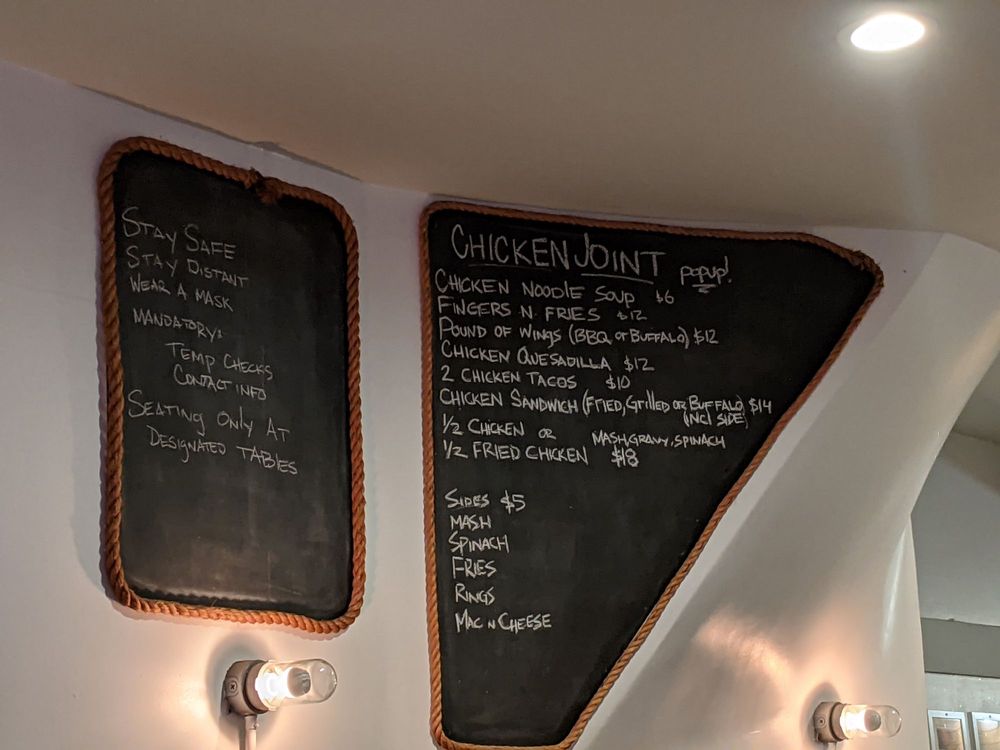 STAY SAFE
STAY DISTANT
WEAR A MASK
MANDATORY:
TEMP CHECKS
CONTACT INFO
SEATING ONLY AT
DESIGNATED TABLES
CHICKEN JOINT popup!
CHICKEN NOODLE SOUP $6
FINGERS N FRIES $12
POUND OF WINGS (BBQ or BUFFALO) $12
CHICKEN QUESADILLA $12
2 CHICKEN TACOS $10
CHICKEN SANDWICH (FRIED, GRILLED OR BUFFALO) $14
(INCL SIDE)
1/2 CHICKEN OR MASH, GRAVY, SPINACH
1/2 FRIED CHICKEN $18
SIDES $5
MASH
SPINACH
FRIES
RINGS
MAC N CHEESE